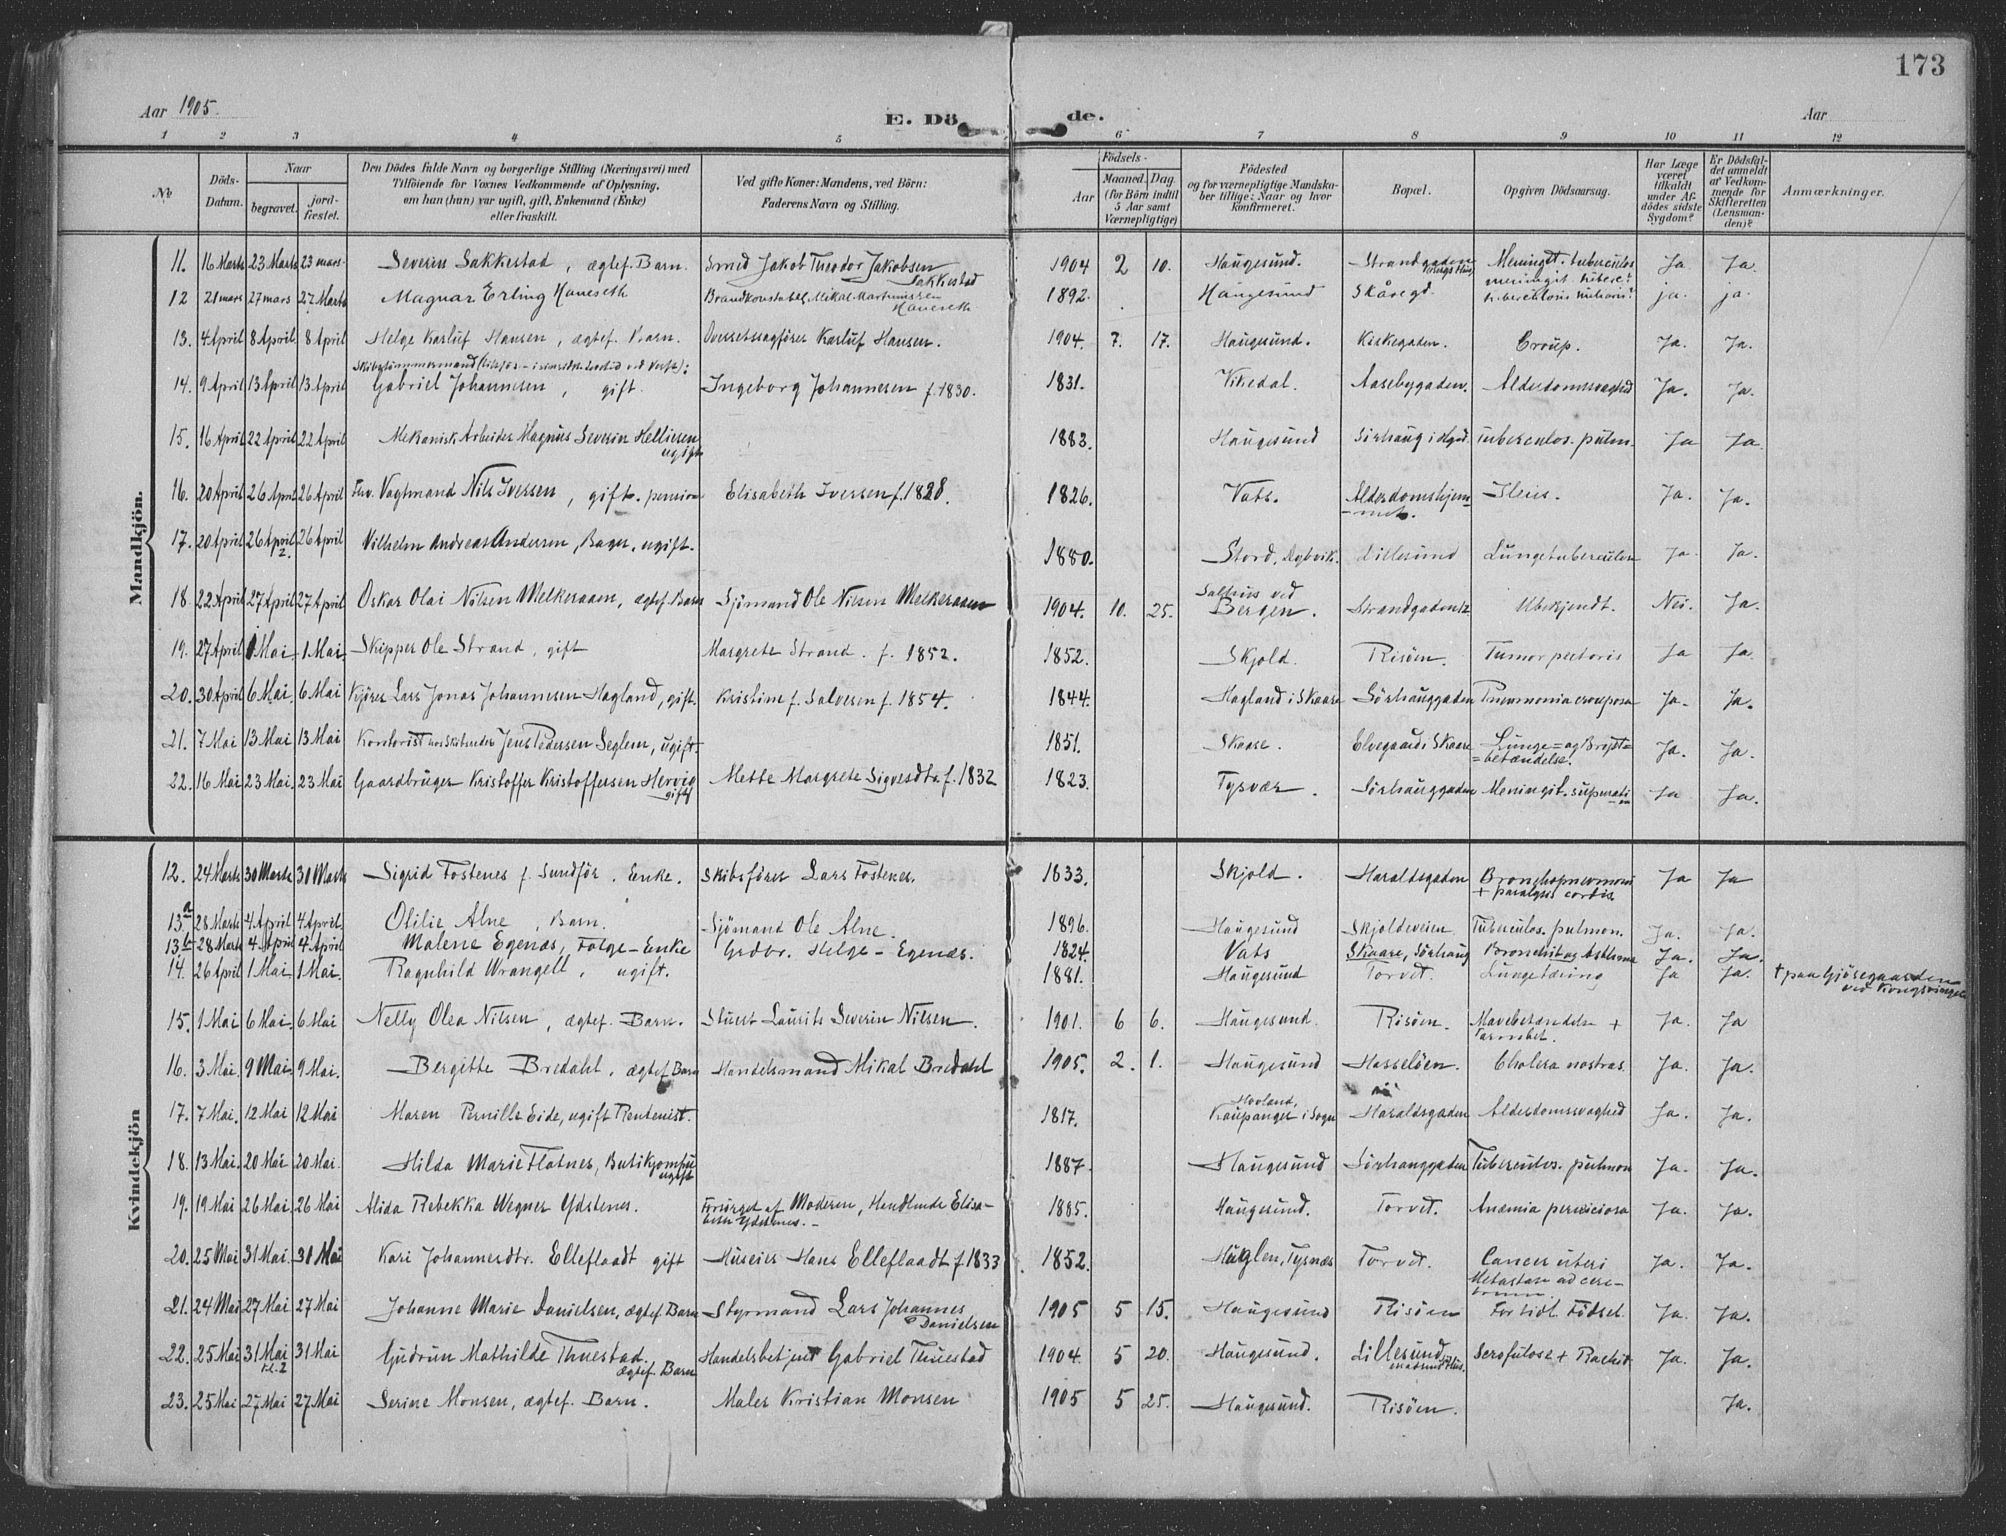 173
Aar 1905. E. Dö de. Aar
1 2 3 4 5 6 7 8 9 10 11 12
No
Döds-Datum.
Naar
begravet. jord-fæstet.
Den Dödes fulde Navn og borgerlige Stilling (Næringsvei) med
Tilföiende for Voxnes Vedkommende af Oplysning,
om han (hun) var ugift, gift, Enkemand (Enke)
eller fraskilt.
Ved gifte Koner: Mandens, ved Börn:
Faderens Navn og Stilling.
Födsels-
Aar Maaned. Dag.
(for Börn indtil 5 Aar samt Værnepligtige)
Födested
og for værnepligtige Mandska-
ber tillige: Naar og hvor
konfirmeret.
Bopæl.
Opgiven Dödsaarsag.
Har Læge været tilkaldt under Af-dödes sidste Sygdom?
Er Dödsfal-det anmeldt af Vedkom-mende for Skifteretten (Lensman-den)?
Anmærkninger.
Mandkjön.
11. 16 Marts 23 Marts 23 mars. Severin Sakkestad, ægtef. Barn. Smed Jakob Theodor Jakobsen Sakkestad 1904 2 10. Haugesund. Strandgaden Meningit. tuberculos Ja Ja.
12 21 mars 27 mars 27 Marts Magnar Erling Haneseth Brandkonstabel Mikal Martinussen Haneseth 1892. Haugesund Skåregd. ja. ja.
13. 4 April 8 April. 8 April Helge Karluf Hansen, ægtef. Barn. Overretssagförer Karluf Hansen. 1904. 7. 17. Haugesund. Kirkegaden. Croup. Ja. Ja.
14. 9 April 13 April 13 April Skibstömmermand Gabriel Johannesen, gift. Ingeborg Johannesen f. 1830. 1831. Vikedal. Aasebygaden. Alderdomssvaghed Ja. Ja.
15. 16 April 22 April 22 April Mekanisk Arbeider Magnus Severin Hellicsen ugift 1883. Haugesund Sörhaug i Hgsd. tuberculos. pulm. Ja Ja.
16. 20 April 26 April 26 April Fhv. Vagtmand Nils Iversen, gift. pension Elisabeth Iversen f. 1828. 1826. Vats. Alderdomshjem-met. Ileus. Ja. Ja.
17. 20 April 26 April 26 April Vilhelm Andreas Andersen, Bager, ugift. 1880. Stord, Dybvik. Lillesund Lungetuberculose Ja. Ja.
18. 22 April 27 April 27 April Oskar Olai Nilsen Melkeraaen, ægtef. Barn Sjömand Ole Nilsen Melkeraaen 1904. 10. 25. Salhus ved Bergen. Strandgaden Ubekjendt. Nei. Ja.
19. 27 April 1 Mai 1 Mai. Skipper Ole Strand, gift Margrete Strand. f. 1852. 1852. Skjold. Risöen. Tumor pectoris Ja Ja.
20. 30 April 6 Mai 6 Mai Kjörer Lars Jonas Johannesen Hagland, gift. Kristine f. Salvesen f. 1854. 1844. Hagland i Skaare Sörhauggaden Pneumonia crouposa Ja. Ja.
21. 7 Mai 13 Mai 13 Mai Kontorist hos Skibsreder Jens Pedersen Seglem, ugift 1851. Skaare. Elvegaard i Skaare Lunge- og Bryst-betændelse. Ja. Ja.
22. 16 Mai 23 Mai. 23 Mai Gaardbruger Kristoffer Kristoffersen Hervig gift Mette Margrete Sigvesdtr. f. 1832 1823. Tysvær. Sörhauggaden Meningit. supurativ Ja Ja.
Kvindekjön
12. 24 Marts 30 Marts 30 Marts Sigrid Fostenes f. Sundför. Enke. Skibsförer Lars Fostenes. 1833. Skjold. Haraldsgaden Bronchopneumoni + paralysis cordis Ja Ja
13a 28 Marts 4 April 4 April. Otilie Alne, Barn. Sjömand Ole Alne. 1896. Haugesund Skjoldeveien. Tuberculos. pulmon. Ja. Ja.
13b 28 Marts 4 April 4 April Malene Egenæs, Fölge-Enke Grdbr. Helge Egenæs. 1824. Vats Skaare, Sörhaug Bronchit og Asthma Ja. Ja.
14. 26 April 1 Mai 1 Mai. Ragnhild Wrangell, ugift. 1881. Haugesund Torvet. Lungetæring Ja Ja. + paa Gjösegaarden ved Kongsvinger
15. 1 Mai 6 Mai. 6 Mai Nelly Olea Nilsen, ægtef. Barn. Stuert Laurits Severin Nilsen. 1901. 6 6. Haugesund. Risöen. Mavebetændelse + Tarmbet. Ja. Ja
16. 3 Mai. 9 Mai. 9 Mai. Bergitte Bredahl, ægtef. Barn Handelsmand Mikal Bredahl 1905. 2. 1. Haugesund Hasselöen. Cholera nostras. Ja. Ja.
17. 7 Mai. 12 Mai 12 Mai Maren Pernille Eide, ugift Rentenist. 1817. Hovland, Kaupanger i Sogn Haraldsgaden Alderdomssvaghed Ja. Ja.
18. 13 Mai. 20 Mai 20 Mai. Hilda Marie Flatnes, Butikjomfru ugift 1887. Haugesund Sörhauggaden Tuberculos. pulmon Ja. Ja.
19. 19 Mai 26 Mai. 26 Mai Alida Rebekka Wegner Ydstenes. Forsörget af Moderen, Handlende Elisabeth Ydstenes. 1885. Haugesund. Torvet. Anæmia perniciosa Ja. Ja.
20. 25 Mai 31 Mai. 31 Mai Kari Johannesdtr. Elleflaadt gift Huseier Hans Elleflaadt f 1833 1852. Huglen, Tysnæs Torvet. Cancer uteri Metastase ad cerebrum. Ja. Ja.
21. 24 Mai 27 Mai 27 Mai Johanne Marie Danielsen, ægtef. Barn Styrmand Lars Johannes Danielsen 1905 5 15. Haugesund Risöen For tidl. Födsel Ja. Ja.
22. 25 Mai 31 Mai kl. 2 31 Mai Gudrun Mathilde Thuestad. ægtef. Barn Handelsbetjent Gabriel Thuestad 1904. 5 20. Haugesund. Lillesund Scrofulose + Rachit. Ja. Ja.
23. 25 Mai 27 Mai 27 Mai Serine Monsen, ægtef. Barn. Maler Kristian Monsen 1905 5 25. Haugesund. Risöen. Ja.